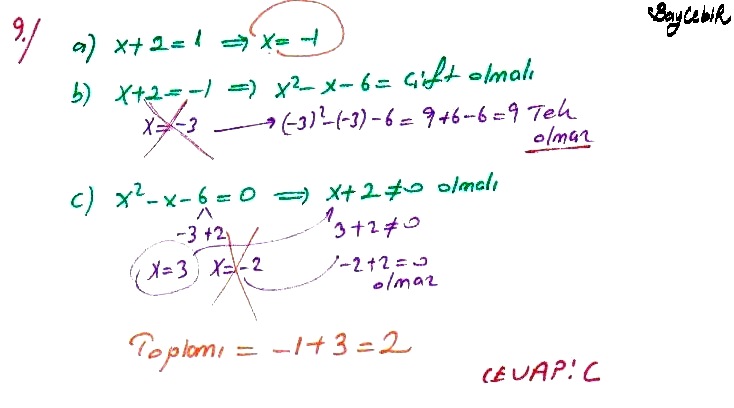 BayCebiR
9./ a) x+2=1 ⇒ x=-1
b) x+2=-1 ⇒ x²-x-6= Çift olmalı
x=-3 → (-3)²-(-3)-6=9+6-6=9 Tek
olmaz
c) x²-x-6=0 ⇒ x+2≠0 olmalı
-3 +2 3+2≠0
x=3 x=-2 -2+2=0
olmaz
Toplamı = -1+3=2
CEVAP: C